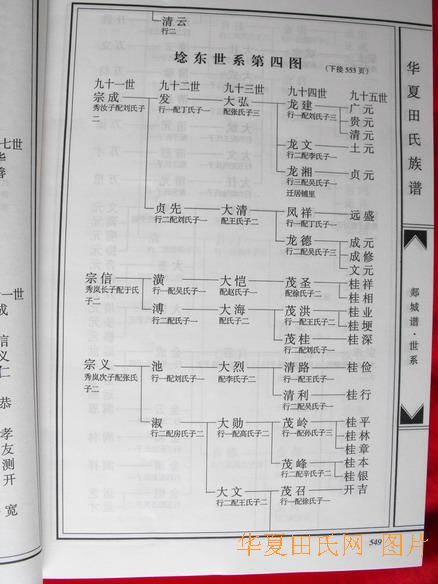 清云
行二
埝东世系第四图
(下接 553 页)
九十一世 九十二世 九十三世 九十四世 九十五世
宗成 发 大弘 龙建 广元
秀汝子配刘氏子二 行一配丁氏子一 配张氏子三 行一配刘氏子三
贵元
清元
龙文 土元
行二配李氏子一
龙湘 贞元
行三配吴氏子一
迁居铺里
贞先 大清 凤祥 远盛
行二配刘氏子一 配王氏子二 行一配丁氏子一
龙德 成元
行二配吴氏子三 成修
文元
宗信 潢 大恺 茂圣 桂祥
秀岚长子配于氏子二 行一配吴氏子一 配赵氏子一 配徐氏子二 桂相
溥 大海 茂洪 桂业
行二配氏子一 配氏子二 行一配王氏子二 桂埂
茂桂 桂深
行二配刘氏子一
宗义 池 大烈 清路 桂俭
秀岚次子配张氏子二 行一配刘氏子一 配李氏子二 行一配王氏子一
清利 桂行
行二配吴氏子一
淑 大勋 茂岭 桂平
行二配房氏子二 行一配高氏子二 行一配孙氏子三 桂林
桂章
茂峰 桂本
行二配辛氏子二 桂银
大文 茂召 开吉
行二配王氏子二 行一配徐氏子一
549
华夏田氏族谱
郯城谱·世系
七世
一世
成
信
义
仁
恭
孝
友
测
开
宽
华夏田氏网 图片